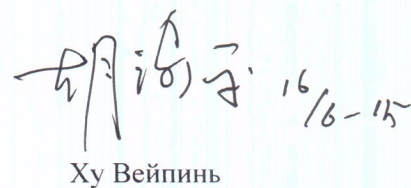 胡 16/6-15
Ху Вейпинь